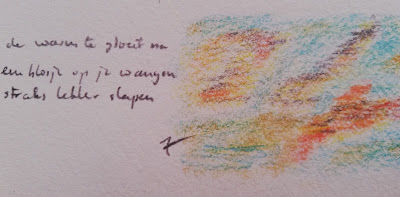 de warmte gloeit na
een blosje op je wangen
straks lekker slapen